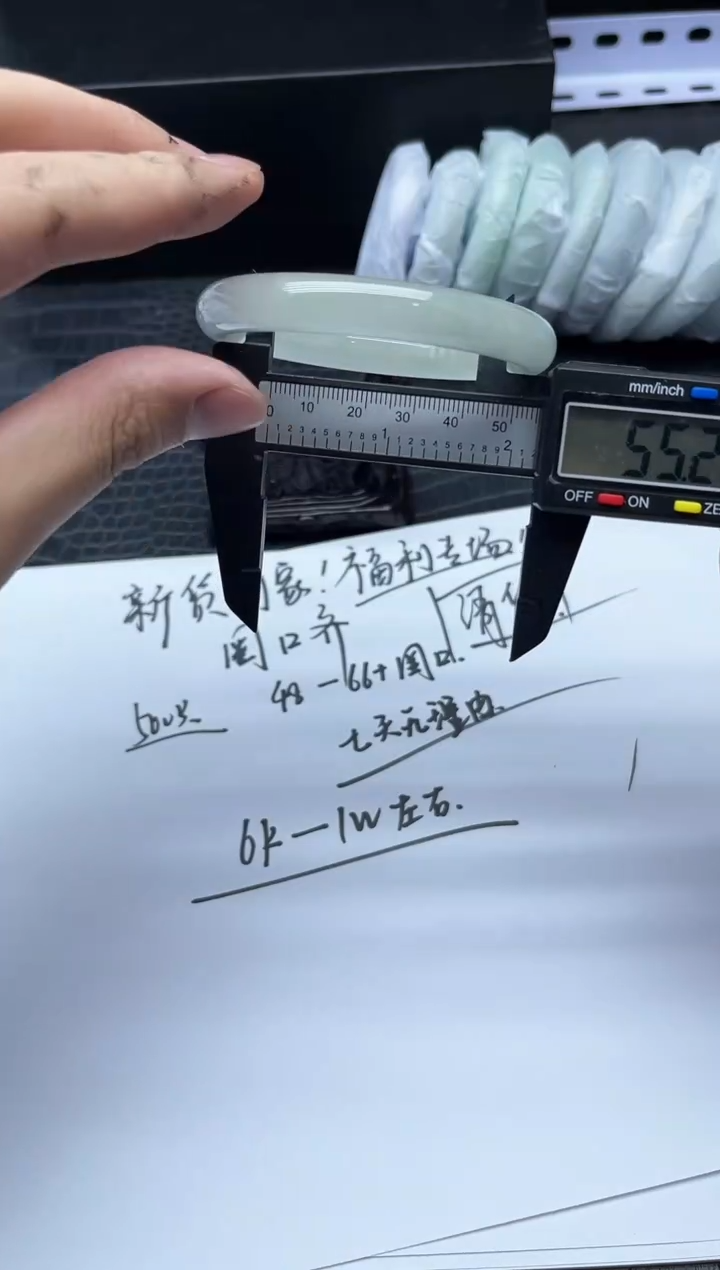 mm/inch
0 10 20 30 40 50
1 2 3 4 5 6 7 8 9 1 1 2 3 4 5 6 7 8 9 2 1
55.2
OFF ON ZE
新货 家！福利专场！
圈口齐
48-66+圈口.
50以
七天无理由.
6k-1w左右.